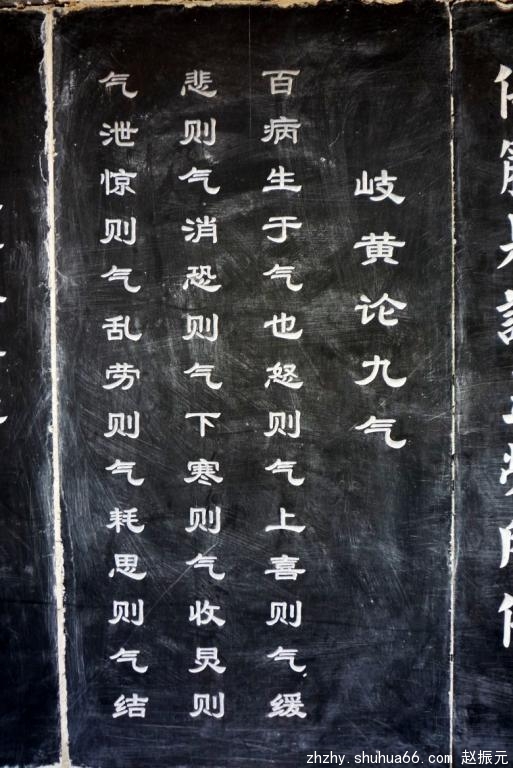 岐黄论九气
百病生于气也怒则气上喜则气缓
悲则气消恐则气下寒则气收炅则
气泄惊则气乱劳则气耗思则气结
zhzhy.shuhua66.com 赵振元